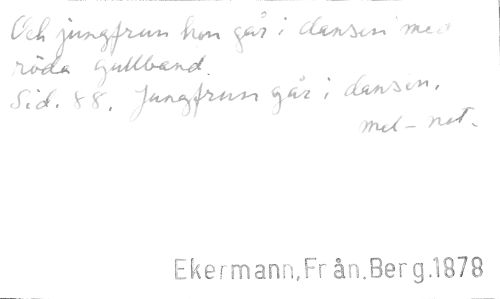 Och jungfrun hon går i dansen med
röda gullband.
Sid. 88. Jungfrun går i dansen.
mel-not.
Ekermann, Från. Berg. 1878